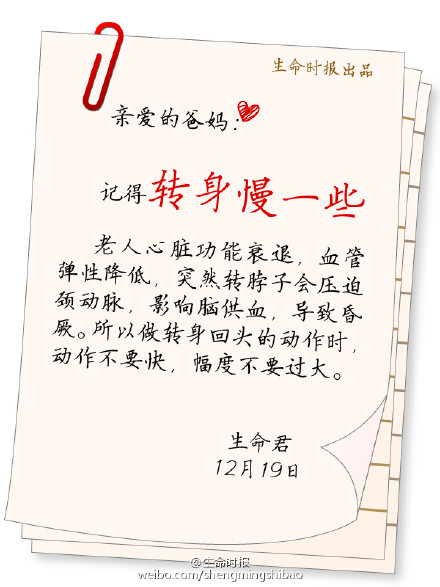 生命时报出品
亲爱的爸妈：
记得转身慢一些
老人心脏功能衰退，血管
弹性降低，突然转脖子会压迫
颈动脉，影响脑供血，导致昏
厥。所以做转身回头的动作时，
动作不要快，幅度不要过大。
生命君
12月19日
@生命时报
weibo.com/shengmingshibao